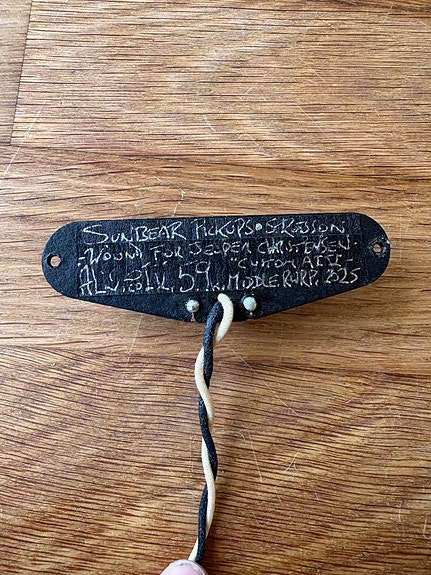 SUNBEAR PICKUPS • S. ROBSON
- WOUND FOR JESPER CHRISTENSEN -
- CUSTOM
ALN 5.9k. MIDDLE RWRP. 2025